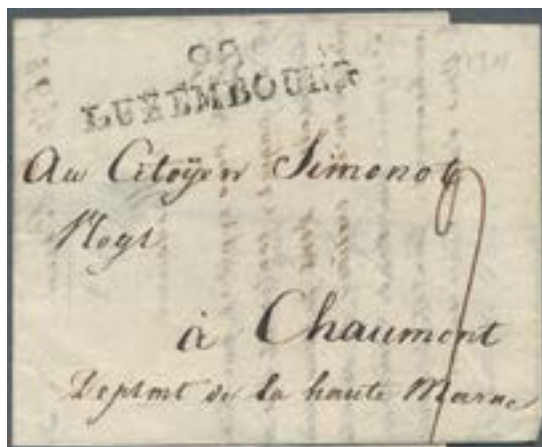 98
LUXEMBOURG
Au Citoÿen Simonot
Negt
à Chaumont
Deptmt de la haute Marne